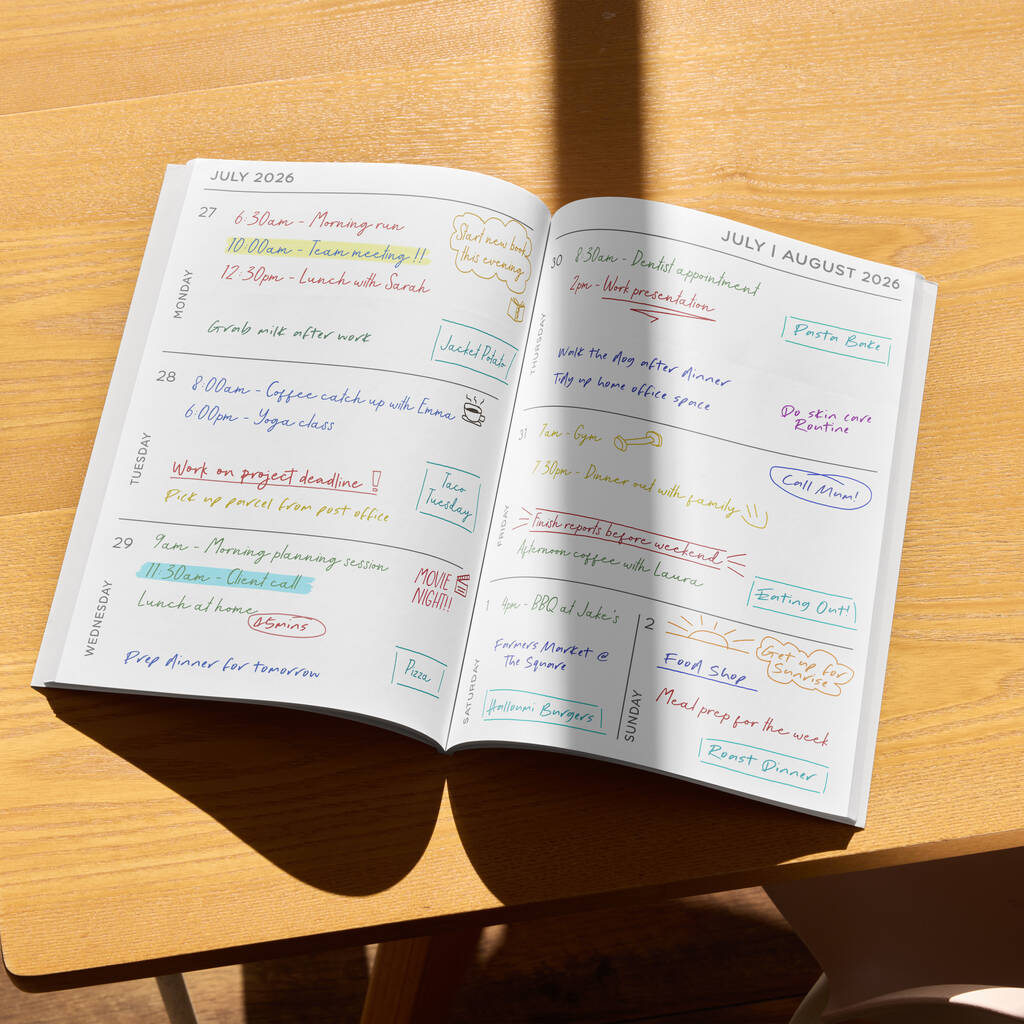 JULY 2026
27
MONDAY
6:30am - Morning run
10:00am - Team meeting !!
12:30pm - Lunch with Sarah
Start new book
this evening
Grab milk after work
Jacket Potato
28
TUESDAY
8:00am - Coffee catch up with Emma
6:00pm - Yoga class
Work on project deadline !
Pick up parcel from post office
Taco
Tuesday
29
WEDNESDAY
9am - Morning planning session
11:30am - Client call
Lunch at home
45mins
MOVIE
NIGHT!!
Prep dinner for tomorrow
Pizza
JULY | AUGUST 2026
30
THURSDAY
8:30am - Dentist appointment
2pm - Work presentation
Pasta Bake
Walk the dog after dinner
Tidy up home office space
Do skin care
Routine
31
FRIDAY
7am - Gym
7:30pm - Dinner out with family
Call Mum!
Finish reports before weekend
Afternoon coffee with Laura
Eating Out!
1
SATURDAY
4pm - BBQ at Jake's
Farmers Market @
The Square
Halloumi Burgers
2
SUNDAY
Get up for
Sunrise
Food Shop
Meal prep for the week
Roast Dinner